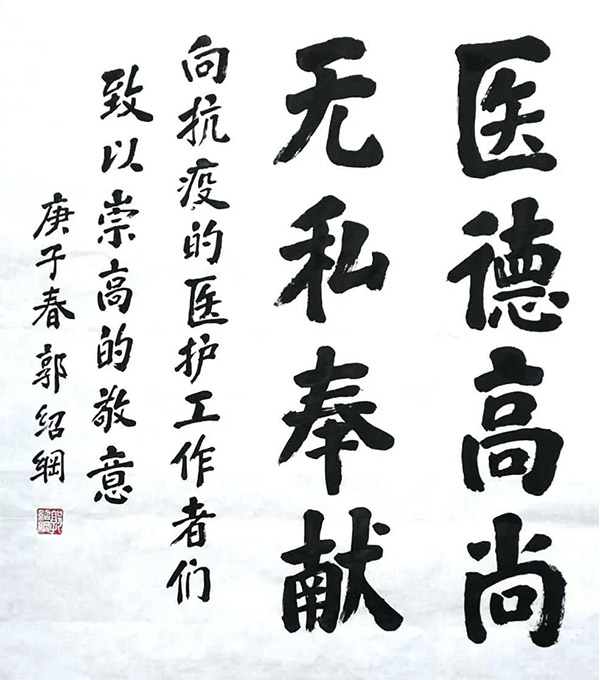 医德高尚
无私奉献
向抗疫的医护工作者们
致以崇高的敬意
庚子春郭绍纲